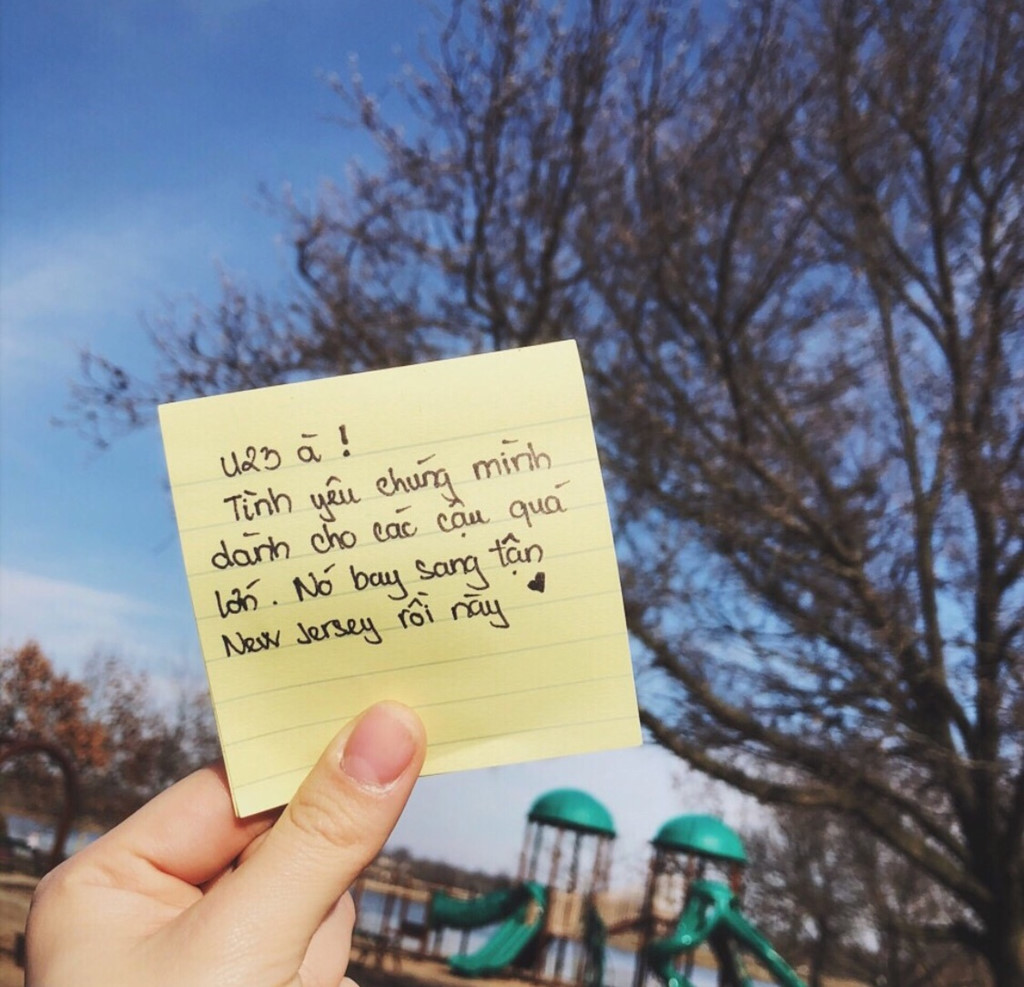 U23 à !
Tình yêu chúng mình
dành cho các cậu quá
lớn. Nó bay sang tận
New Jersey rồi này ♥